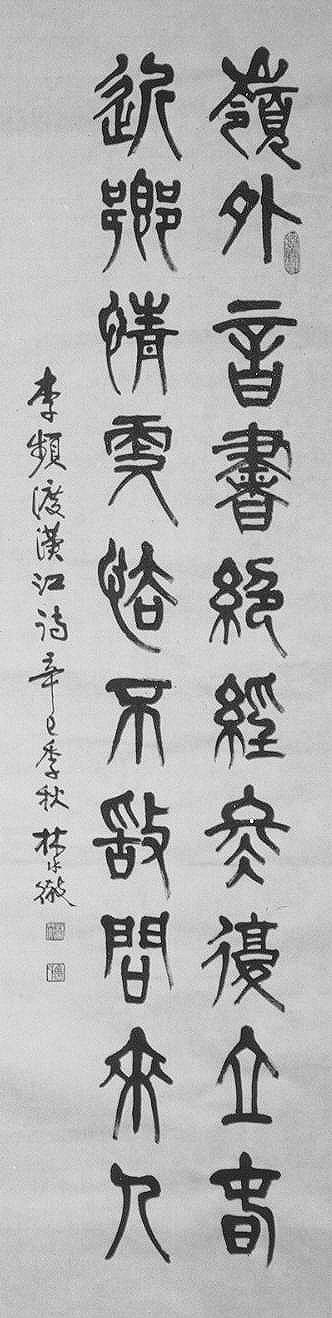 嶺外音書絕經冬復立春
近鄉情更怯不敢問來人
李頻渡漢江詩辛巳季秋林